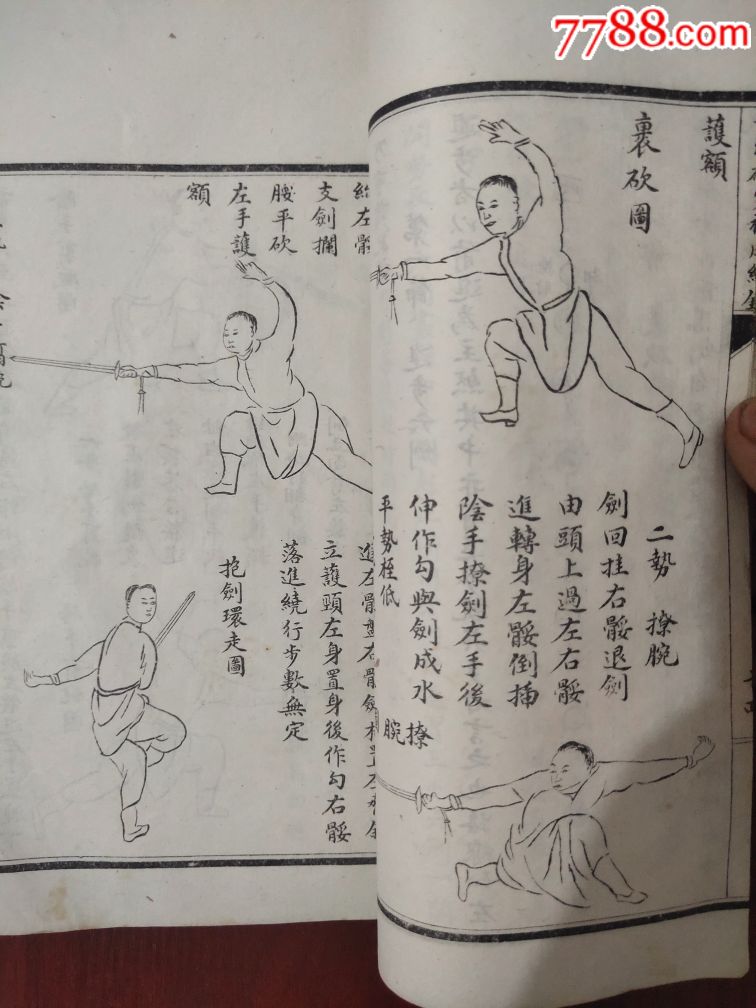 7788.com
護額
裹砍圖
二勢 撩腕
劍回挂右骽退劍
由頭上過左右骽
進轉身左骽倒插
陰手撩劍左手後
伸作勾與劍成水
平勢桎低
撩腕
左骽
支劍攔
腰平砍
左手護
額
立護頸左身置身後作勾右骽
落進繞行步數無定
抱劍環走圖